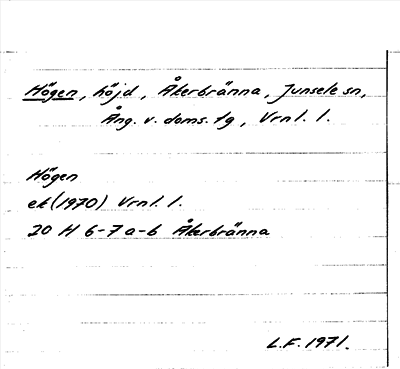 Högen, höjd, Åkerbränna, Junsele sn,
Ång. v. doms. tg, Vrnl. l.
Högen
ek (1970) Vrnl. l.
20 H 6-7 a-b Åkerbränna
L.F. 1971.